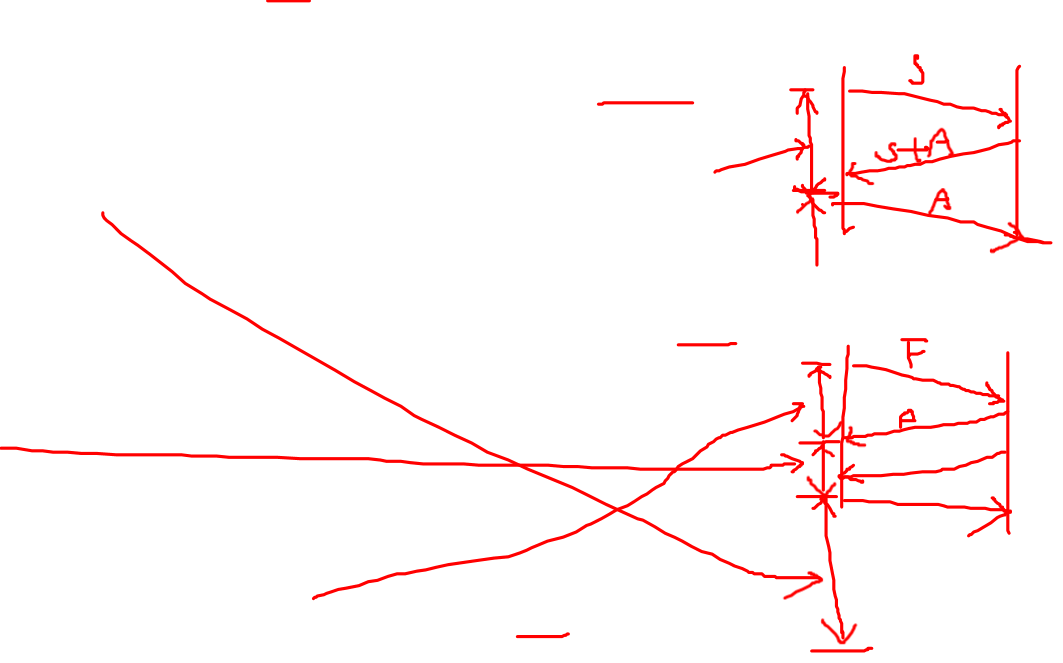 S
S+A
A
F
A